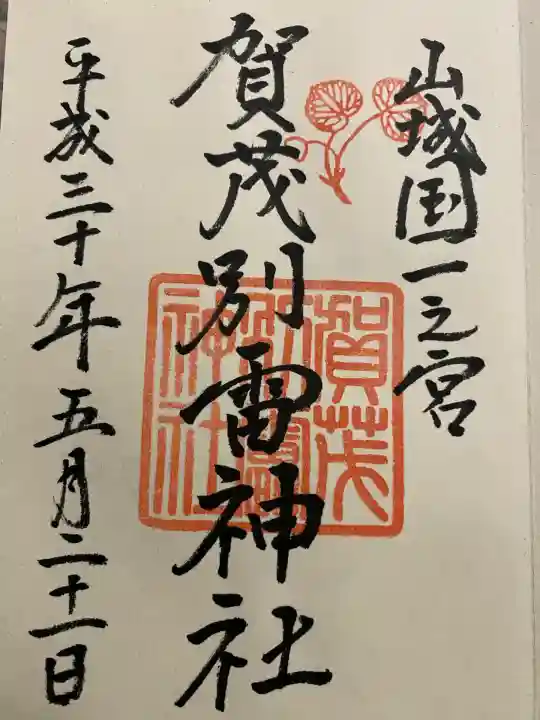 山城国一之宮
賀茂別雷神社
賀茂
別雷
神社
平成三十年五月二十一日